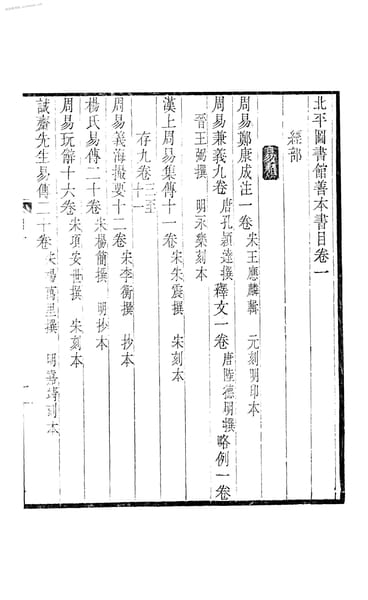 北平圖書館善本書目卷一
經部
易類
周易鄭康成注一卷 宋王應麟輯 元刻明印本
周易兼義九卷 唐孔穎達撰 釋文一卷 唐陸德明撰 略例一卷
晉王弼撰 明永樂刻本
漢上周易集傳十一卷 宋朱震撰 宋刻本
存九卷 三至十一
周易義海撮要十二卷 宋李衡撰 抄本
楊氏易傳二十卷 宋楊簡撰 明抄本
周易玩辭十六卷 宋項安世撰 宋刻本
誠齋先生易傳二十卷 宋楊萬里撰 明嘉靖刻本